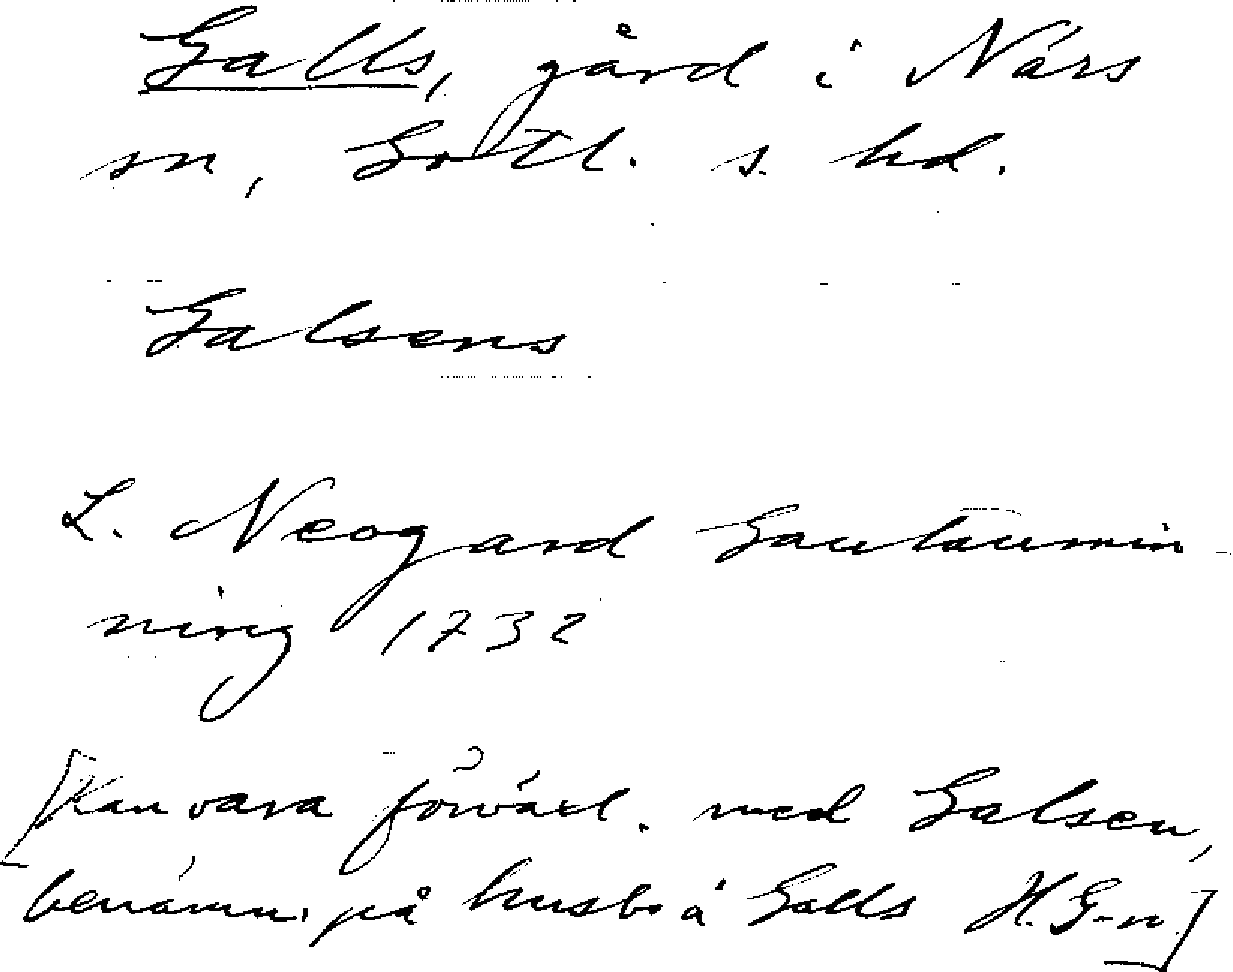 Galls, gård i Närs
sn, Gotl. s. hd.
Galsens
L. Neogard Gautaumin-
ning 1732
[Kan vara förväxl. med Galsen,
benämn. på husbo å Galls H. G-n.]